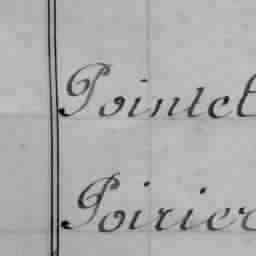 Pointet
Poirier